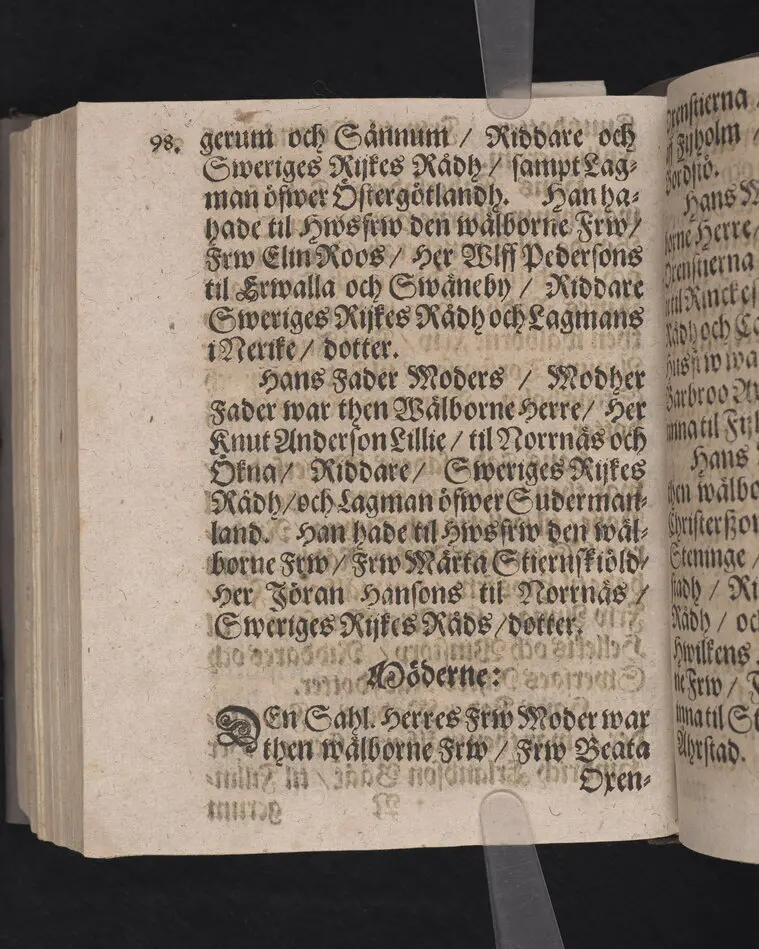 98.
gerum och Sännum / Riddare och
Sweriges Rijkes Rådh / sampt Lag-
man öfwer Östergötlandh. Han ha-
hade til Hwsfrw den wälborne Frw /
Frw Elin Roos / Her Wlff Pedersons
til Erwalla och Swäneby / Riddare
Sweriges Rijkes Rådh och Lagmans
i Nerike / dotter.
Hans Fader Moders / Modher
Fader war then Wälborne Herre / Her
Knut Anderson Lillie / til Norrnäs och
Ökna / Riddare / Sweriges Rijkes
Rådh / och Lagman öfwer Suderman-
land. Han hade til Hwsfrw den wäl-
borne Frw / Frw Märta Stiernskiöld /
Her Jöran Hansons til Norrnäs /
Sweriges Rijkes Råds / dotter.
Möderne:
DEn Sahl. Herres Frw Moder war
then wälborne Frw / Frw Beata
Oxen-
renstierna
Fijholm /
Hans
Herre /
renstierna
til Rinckes
Rådh och
Barbroo
na til
Hans
den wälbo
Christerszon
Steninge /
Rådh / oc
Hwilkens
ne Frw /
na til
Ahrstad.